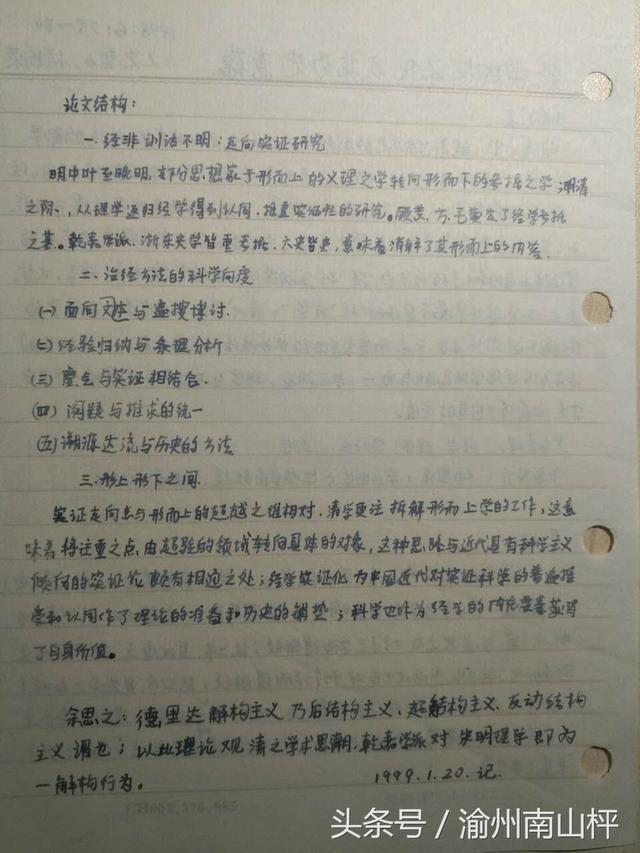 论文结构：
一. 经非训诂不明：走向实证研究
明中叶至晚明，部分思想家于形而上的义理之学转向形而下的考据之学，明清
之际、从理学返归经学得到认同．推重实证性的研究。顾黄、方、毛奠定了经学考据
之基。乾嘉学派、浙东史学皆重考据．六史皆史，意味着消解了其形而上的内容．
二．治经方法的科学向度
(一) 面向文本与遍搜博讨．
(二) 经验归纳与条理分析
(三) 会与实证相结合．
(四) 阙疑与推求的统一
(五) 溯源达流与历史的方法
三．形上形下之间．
实证走向与形而上的超越之维相对．清学更注拆解形而上学的工作，这意
味着将注重之点由超验的领域转向具体的对象，这种思路与近代具有科学主义
倾向的实证论颇有相通之处；经学实证化为中国近代对实证科学的普遍推
崇和认同作了理论的准备和历史的铺垫；科学也作为经学的内在要素获得
了自身价值。
余思之：德里达解构主义乃后结构主义、超解构主义、反动结构
主义谓也；以此理论观清之学术思潮，乾嘉学派对宋明理学即为
一解构行为。 1999.1.20.记．
头条号／渝州南山枰